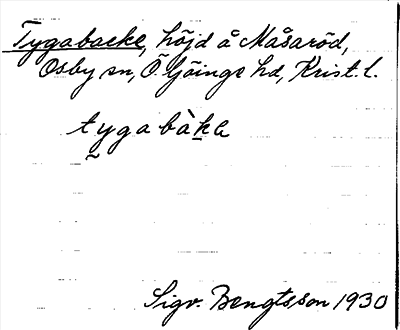 Tygabacke, höjd å Måsaröd,
Osby sn, Ö. Göinge hd, Krist. l.
tyga bàka
Sigv. Bengtsson 1930